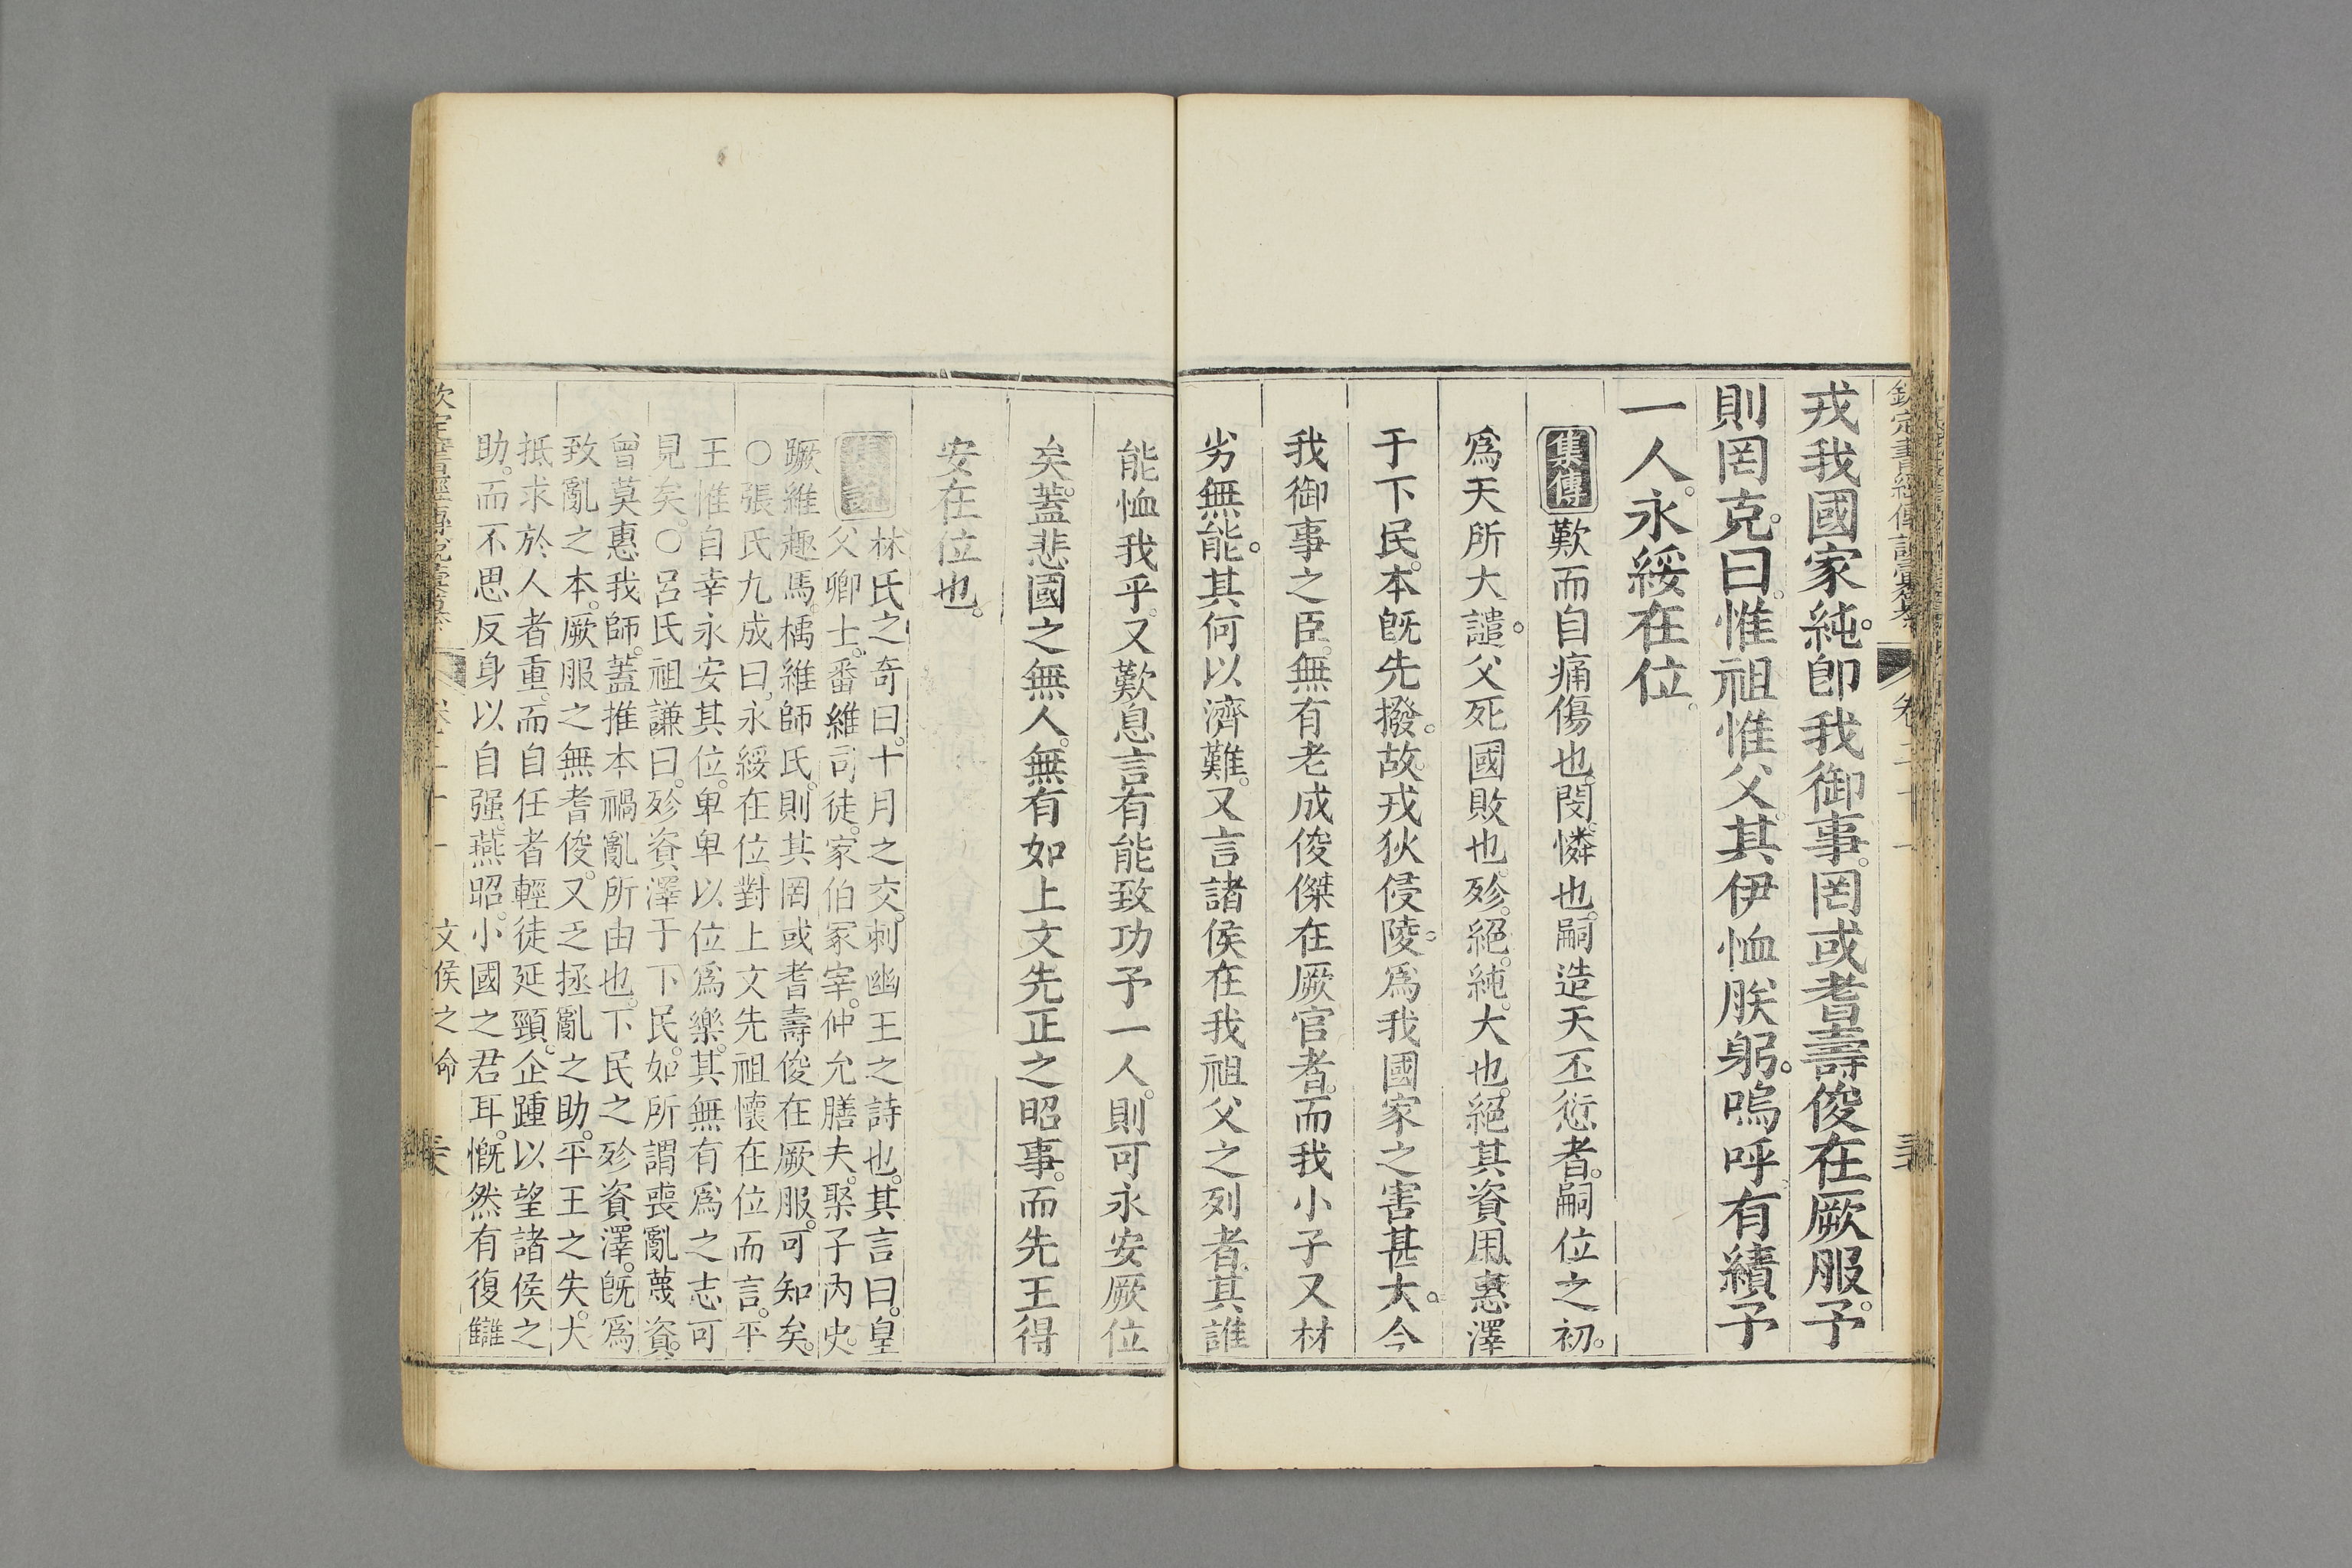 戎我國家純。卽我御事。罔或耆壽俊在厥服。予
則罔克。曰。惟祖惟父。其伊恤朕躬。嗚呼。有績予
一人。永綏在位。
集傳 歎而自痛傷也。閔。憐也。嗣造天丕愆者。嗣位之初。
爲天所大譴。父死國敗也。殄。絕。純。大也。絕其資用惠澤
于下民。本旣先撥。故戎狄侵陵。爲我國家之害甚大。今
我御事之臣。無有老成俊傑在厥官者。而我小子又材
劣無能。其何以濟難。又言諸侯在我祖父之列者。其誰
能恤我乎。又歎息言有能致功予一人。則可永安厥位
矣。蓋悲國之無人。無有如上文先正之昭事。而先王得
安在位也。
林氏之奇曰。十月之交。刺幽王之詩也。其言曰。皇
父卿士。番維司徒。家伯冢宰。仲允膳夫。聚子內史。
蹶維趣馬。楀維師氏。則其罔或耆壽俊在厥服。可知矣。
○張氏九成曰。永綏在位。對上文先祖懷在位而言。平
王惟自幸永安其位。卑卑以位爲樂。其無有爲之志可
見矣。○呂氏祖謙曰。殄資澤于下民。如所謂喪亂蔑資。
曾莫惠我師。蓋推本禍亂所由也。下民之殄資澤。旣爲
致亂之本。厥服之無耆俊。又乏拯亂之助。平王之失。大
抵求於人者重。而自任者輕。徒延頸企踵以望諸侯之
助。而不思反身以自强。燕昭。小國之君耳。慨然有復讎
文侯之命